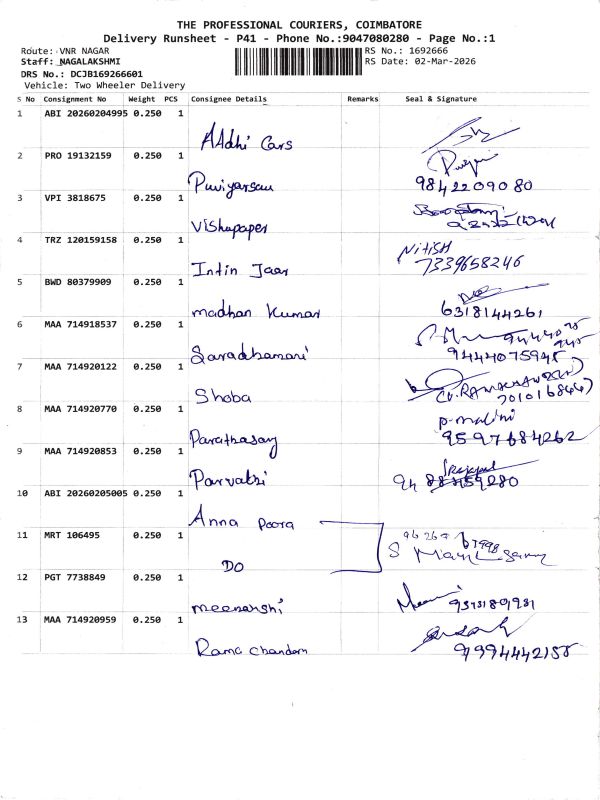 THE PROFESSIONAL COURIERS, COIMBATORE
Delivery Runsheet - P41 - Phone No.:9047080280 - Page No.:1
Route: VNR NAGAR RS No.: 1692666
Staff: NAGALAKSHMI RS Date: 02-Mar-2026
DRS No.: DCJB169266601
Vehicle: Two Wheeler Delivery
S No Consignment No Weight PCS Consignee Details Remarks Seal & Signature
1 ABI 20260204995 0.250 1
AAdhi Cars
2 PRO 19132159 0.250 1
9842209080
3 VPI 3818675 0.250 1
Vishupaper
4 TRZ 120159158 0.250 1
NITISH
Intin Jaar 7339658246
5 BWD 80379909 0.250 1
madhan Kumar 6318144261
6 MAA 714918537 0.250 1
9444075945
7 MAA 714920122 0.250 1
Shoba
8 MAA 714920770 0.250 1
P. malini
9597684262
9 MAA 714920853 0.250 1
10 ABI 20260205005 0.250 1
Anna Poora
11 MRT 106495 0.250 1
DO
12 PGT 7738849 0.250 1
meenarshi
13 MAA 714920959 0.250 1
Rama chandran